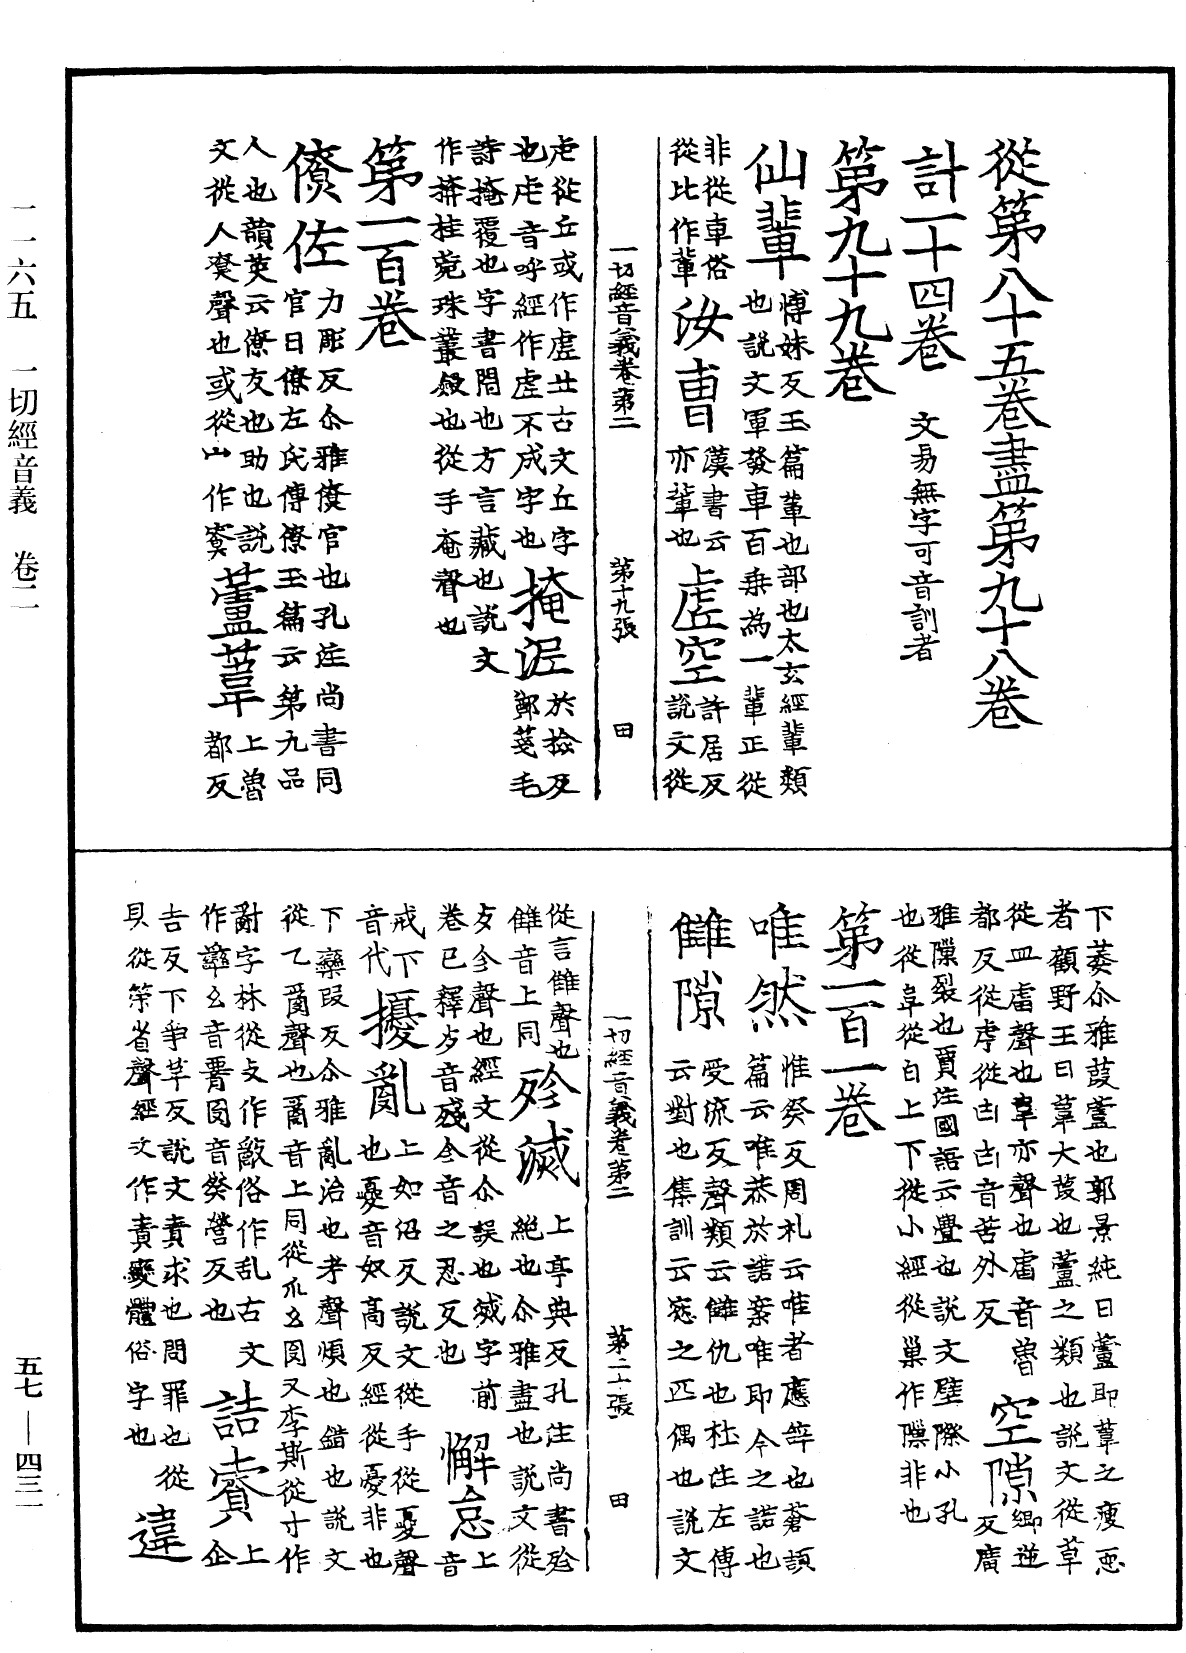 一一六五　一切經音義　卷二
五七—四三一
從第八十五卷盡第九十八卷
計一十四卷　文易無字可音訓者
第九十九卷
仙輩　博妹反玉篇輩也部也太玄經輩類
也説文軍發車百乗為一輩正從
非從車俗
從比作軰
汝曹　漢書云
亦輩也
虛空　許居反
説文從
一切經音義卷第二　第十九張　田
虍從丘或作虗𠀉古文丘字
也虍音呼經作虛不成字也
掩泥　於撿反
鄭箋毛
詩掩覆也字書閉也方言藏也説文
作揜桂菀珠叢斂也從手奄聲也
第一百卷
僚佐　力彫反尒雅僚官也孔注尚書同
官曰僚左氏傳僚玉篇云第九品
人也韻英云僚友也助也説
文從人尞聲也或從山作寮
蘆葦　上魯
都反
下葦尒雅葭蘆也郭景純曰蘆即葦之瘦而
者顧野王曰葦大葭也蘆之類也説文從草
從皿虘聲也韋亦聲也盧音魯
都反從虍從甾甾音苦外反
空隙　卿逆
反廣
雅隟裂也賈注國語云舋也説文壁際小孔
也從𨸏從白上下從小經從巢作隟非也
第一百一卷
唯然　惟癸反周礼云唯者應辝也蒼頡
篇云唯恭於諾案唯即今之諾也
讎隙　受流反聲類云讎仇也杜注左傳
云對也集訓云怨之匹偶也説文
一切經音義卷第二　第二十張　田
從言雔聲也
雔音上同
殄滅　上亭典反孔注尚書殄
絶也尒雅盡也説文從
歹㐱聲也經文從尒誤也滅字前
卷已釋歹音殘㐱音之忍反也
懈怠　上
音
戒下
音代
擾亂　上如沼反説文從手從憂聲
也憂音奴高反經從憂非也
下欒叚反尒雅亂治也考聲煩也錯也説文
從乙𤔔聲也𤔔音上同從爪幺冂又李斯從寸作
𠭴字林從攴作敽俗作乱古文
作𤔬幺音䙴冂音癸營反也
詰責　上
企
吉反下争革反説文責求也問罪也從
貝從朿省聲經文作責變體俗字也
違